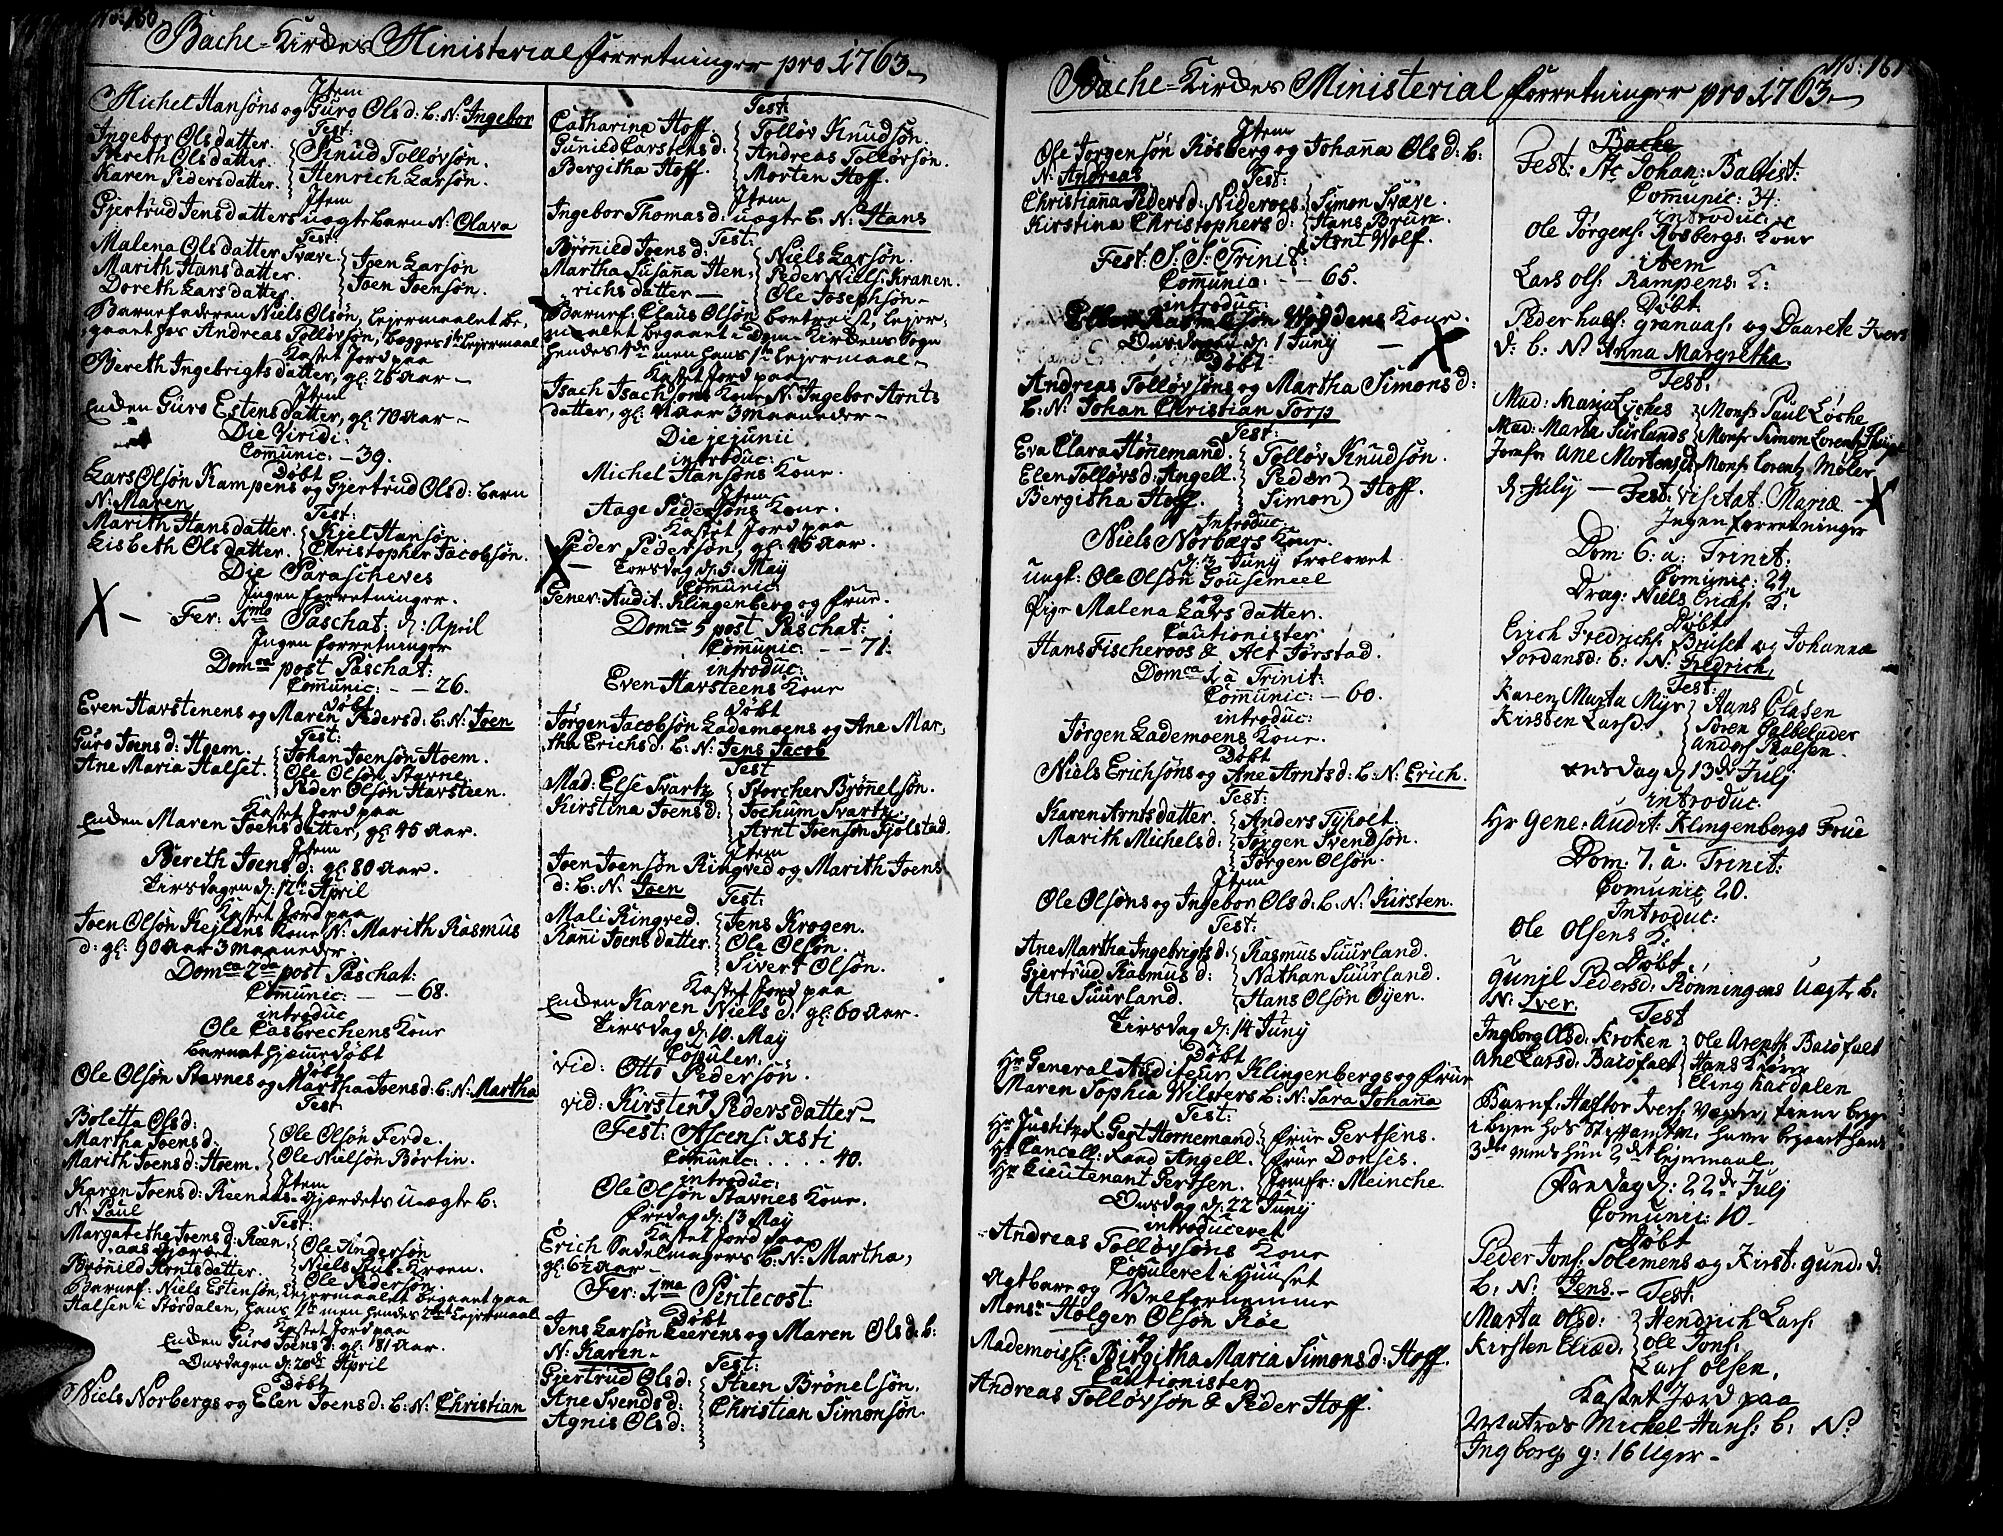 No: 160
Bache-Kirckes Ministerial forretninger pro 1763
Item
Michel Hansøns og Guro Olsd: b: N: Ingebor
Test:
Ingebor Olsdatter. Knud Tolløvsøn.
Bereth Olsdatter. Henrich Larsøn.
Karen Pedersdatter.
Item
Gjertrud Jensdatters uægte barn N: Olava
Test:
Malena Olsdatter Svære Joen Larsøn
Marith Hansdatter. Joen Joensøn.
Doreth Larsdatter.
Barnefaderen Niels Olsøn, Lejermaalet be,
gaaet for Andreas Tolløvsøn, begges 1te Lejermaal
Kastet Jord paa
Bereth Ingebrigtsdatter, gl: 26 Aar
Item
Enchen Guro Estensdatter, gl: 70 Aar
Die Viridi:
Comunic: 39.
Døbt
Lars Olsøn Rampens og Gjertrud Olsd: barn
N: Maren
Test:
Marith Hansdatter. Kjel Hansøn.
Lisbeth Olsdatter. Christopher Jacobsøn.
Die Parascheves
Ingen forretninger.
X Fer: 1ma Paschat: d: April
Ingen forretninger
Domca post Paschat:
Comunic: 26.
Døbt
Even Havstenens og Maren Pedersd: b: N: Joen
Test:
Guro Joensd: Hoem. Johan Joensøn Hoem.
Ane Maria Halset. Ole Olsøn Stavne.
Peder Olsøn Havsteen.
Kastet Jord paa
Enchen Maren Joensdatter, gl: 45 Aar.
Item
Bereth Joensd: gl: 80 Aar.
Tirsdagen d: 12te April
Kastet Jord paa
Joen Olsøn Kejlens Kone N: Marith Rasmus
d: gl: 90 Aar 3 maaneder
Domca 2da post Paschat:
Comunic: 68.
introduc
Ole Casbrechens Kone
barnet hjemmedøbt
Døbt
Ole Olsøn Stavnes og Martha Joensd: b: N: Martha
Test
Boletta Olsd:
Martha Joensd: Ole Olsøn Ferde.
Marith Joensd: Hoem. Ole Nielsøn Børtin.
Item
Karen Joensd: Reenaas-gjærdets uægte b:
N: Paul
Test:
Margarethe Joensd: Reen, Ole Andersøn
aas gjæret. Niels Rub-Kroen.
Brønild Arntsdatter. Ole Pedersøn.
Barnef: Niels Estensøn, Lejermaalet begaaet paa
Halsen i Størdalen, hans 1te men hendes 2det Lejermaal
Kastet Jord paa
Enchen Guro Joensd: gl: 81 Aar.
Onsdagen d: 20de April
Døbt
Niels Norbergs og Elen Joensd: b: N: Christian
Test:
Catharina Hoff. Tolløv Knudsøn.
Gunild Carstensd: Andreas Tolløvsøn.
Bergitha Hoff. Morten Hoff.
Item
Ingebor Thomasd: uægte b: N: Hans
Test:
Brønild Joensd: Niels Larsøn.
Martha Susaña Hen, Peder Niels: Kranen.
richsdatter Ole Josephsøn
Barnef: Claus Olsøn bortreist, Lejer,
maalet begaaet i Dom-Kirckens Sogn
hendes 4de men hans 1te Lejermaal
Kastet Jord paa
Isach Isachsøns Kone N: Ingebor Arnts
datter, gl: 41 Aar 3 maaneder
Die jejunii
introduc:
Michel Hansøns Kone.
Item
Aage Pedersøns Kone.
Kastet Jord paa
Peder Pedersøn, gl: 46 Aar.
X Torsdag d: 5 May
Comunic:
Gener: Audit: Klingenberg og frue.
Domca 5 post Paschat:
Comunic: 71.
introduc:
Even Havsteens Kone
Døbt
Jørgen Jacobsøn Lademoens og Ane Mar,
tha Erichsd: b: N: Jens Jacob
Test
Mad: Else Svartz Storcher Brønelsøn.
Kirstina Joensd: Jochum Svartz.
Arnt Joensøn Fjølstad.
Item
Joen Joensøn Ringved og Marith Joens
d: b: N: Joen
Test:
Mali Ringved. Jens Krogen.
Rani Joensdatter. Ole Olsøn.
Sivert Olsøn.
Kastet Jord paa
Enchen Karen Nielsd: gl: 60 Aar.
Tirsdag d: 10 May
Copuler:
vid: Otto Pedersøn.
og
vid: Kirsten Pedersdatter
Fest: Ascens: xsti
Comunic. . . . 40.
introduc:
Ole Olsøn Stavnes Kone.
Fredag d: 13 May
Kastet Jord paa
Erich Sadelmagers b: N: Martha,
gl: 6½ Aar
Fer: 1ma Pentecost:
Døbt
Jens Larsøn Leerens og Maren Olsd: b:
N: Karen
Test:
Gjertrud Olsd: Steen Brønelsøn.
Ane Svendsd: Christian Simonsøn.
Agnis Olsd:
No: 161
Bache-Kirckes Ministerial forretninger pro 1763
Item
Ole Jørgensøn Røsberg og Johaña Olsd: b:
N: Andreas
Test:
Christiana Pedersd: Nideroes Simon Svære.
Kirstina Christophersd: Hans Bruun.
Arnt Wolf.
Fest: S: S: Trinit:
Comunic: 65.
introduc:
Kone.
Onsdagen d: 1 Juny X
Døbt
Andreas Tolløvsøns og Martha Simonsd:
b: N: Johan Christian Torp
Test:
Eva Clara Hornemand. Tolløv Knudsøn.
Elen Tolløvsd: Angell. Peder
Bergitha Hoff. Simon Hoff.
Introduc
Niels Norbærs Kone.
d: 3 Juny trolovet
ungk: Ole Olsøn Gousemeel
og
Pige Malena Larsdatter.
Cautionister
Hans Fischeroos & Act Jørstad.
Domca 1 a Trinit:
Comunic: 60.
introduc:
Jørgen Lademoens Kone.
Døbt
Niels Erichsøns og Ane Arntsd: b: N: Erich.
Test:
Karen Arntsdatter. Anders Tyholt.
Marith Michelsd: Jørgen Svendsøn.
Jørgen Olsøn.
Item
Ole Olsøns og Ingebor Olsd: b: N: Kirsten.
Test:
Ane Martha Ingebrigtsd: Rasmus Suurland.
Gjertrud Rasmusd: Nathan Suurland.
Ane Suurland. Hans Olsøn Øyen.
Tirsdag d: 14 Juny
Døbt
Hr General Auditeur Klingenbergs og Frue
Maren Sophia Wilsters b: N: Sara Johaña
Test:
Hr Justitzr Gest Hornemand. frue Gertsens.
Hr Cancell: Raad Angell. frue Donses.
Hr Lieutenant Gertsen. Jomfr: Meinche.
Onsdag d: 22 Juny
introduceret
Andreas Tolløvsøns Kone
Copuleret i Huuset
Agtbare og Velfornemme
Monsr Holger Olsøn Røe
og
Mademoiss: Birgitha Maria Simonsd: Hoff.
Cautionister
Andreas Tolløvsøn & Peder Hoff.
Bache
Fest: Sti Johan: Baltist:
Comunic: 34.
introduc:
Ole Jørgens: Røsbergs Kone
item
Lars Ols: Rampens: K:
Døbt
Peder hals: granaas: og Daarete Iver
d: b: N: Anna Margretha
Test:
Mad: Maria Lyches Monsr Paul Løche
Mad: Marta Surlands Monsr Simon Lorentz
Jomfr Ane Mortensd Monsr Lorentz Møler
d: July Fest: visitat: Mariæ X
Ingen forretninger
Dom: 6: a: Trinit:
Comunic: 24.
Drag: Niels Erichs: K:
Døbt
Erich Fredrichs: Bruset og Johanna
Jordansd: b: N: Fredrich,
Test:
Karen Marta Myr Hans Olasen
Kirsten Larsd: Søren Galbeluder
Onsdag d: 13de Julj
introduc
Hr Gene: Audit: Klingenbergs Frue
Dom: 7. a. Trinit:
Comunic 20.
Introduc:
Ole Olsens K:
Døbt
Gunil Pedersd: Rønningens Uægte b:
N: Iver.
Test
Ingborg Olsd: Kroken ole Arenth: Barófalt
Ane Larsd: BaróFalt Hans Krøren
Eling hardalen
3de mens hun 2de lejermaal.
Fredag d: 22de Julj
Comunic: 10
Døbt
Peder Jons: Solemens og Kirst: gund: d:
b: N: Jens. Test:
Marta Olsd: Hendrich Lars:
Kirsten Eliæd: Ole Jons:
Lars Olsen,
Kastet Jord paa
Matros Michel Hans: b: N:
Ingborg g: 16 Uger